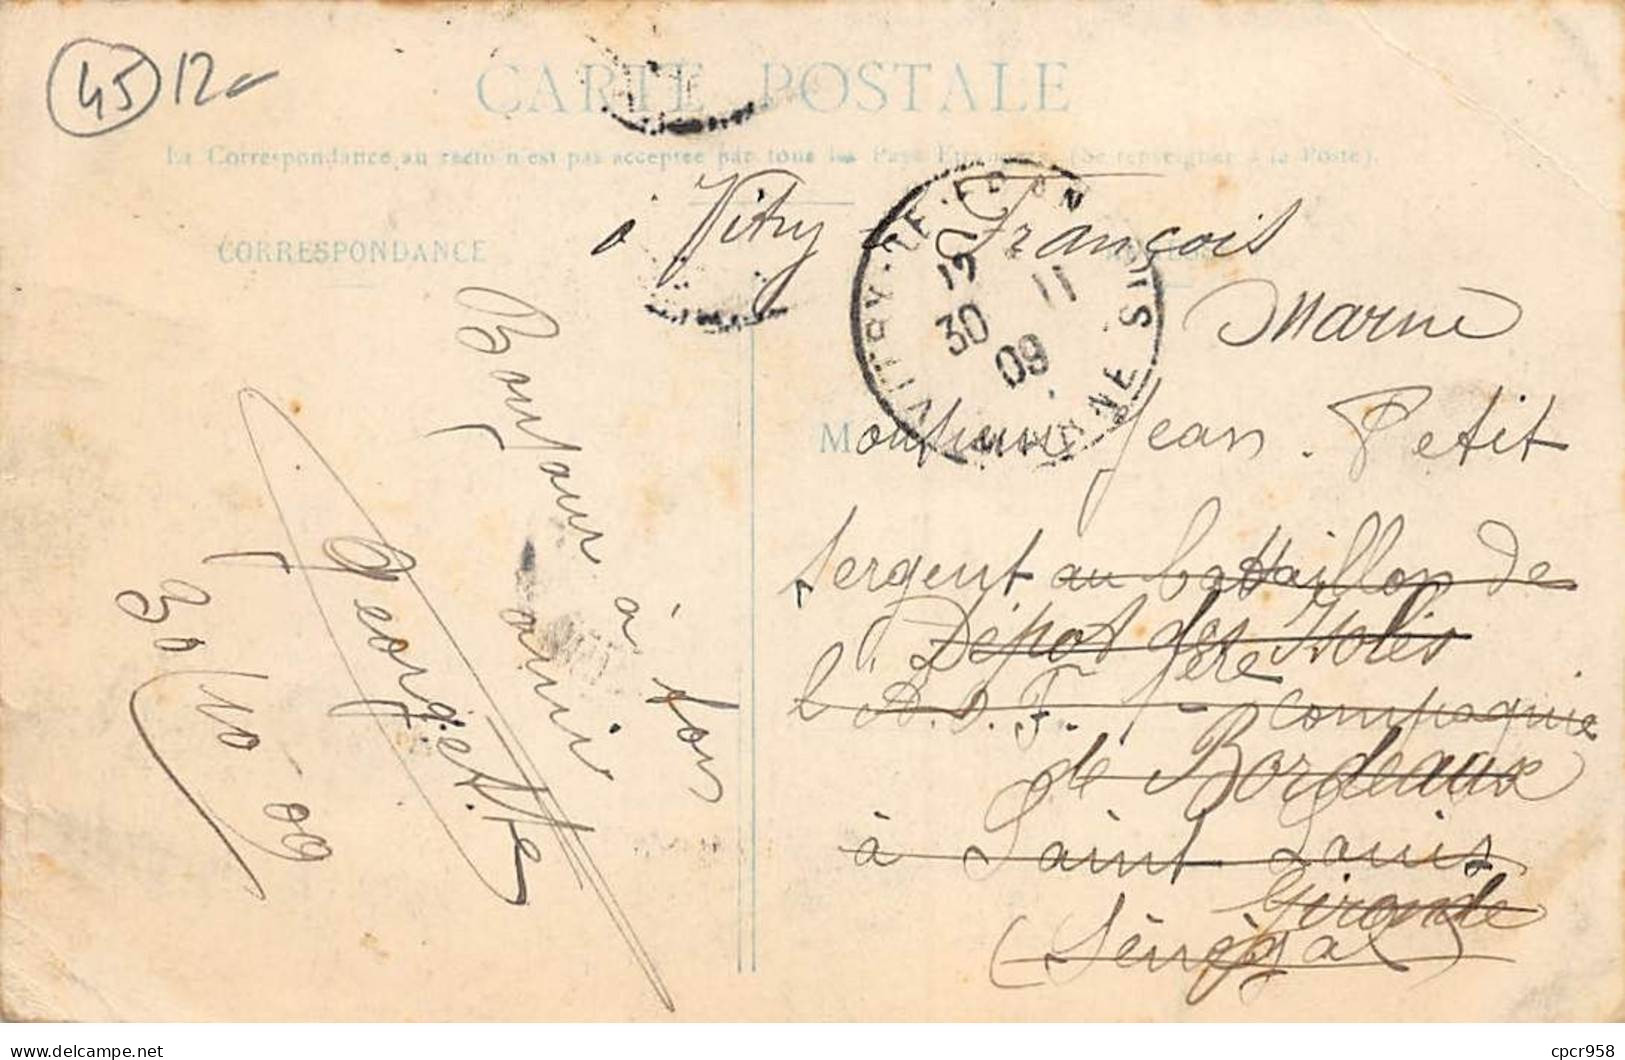 45 12
CARTE POSTALE
La Correspondance au recto n'est pas acceptée par tous les Pays Etrangers. (Se renseigner à la Poste).
à Vitry - le - François
CORRESPONDANCE
Marne
VITRY-LE-FRANÇOIS
12
30 11
09
MARNE
Monsieur Jean Petit
Sergent au battaillon de
Dépôt des Isolés
l'A.O.F. 1ère compagnie
de Bordeaux
à Saint Louis
Gironde
(Sénégal)
Bonjour à ton
ami
Georgette
30/10-09
delcampe.net
cpcr958